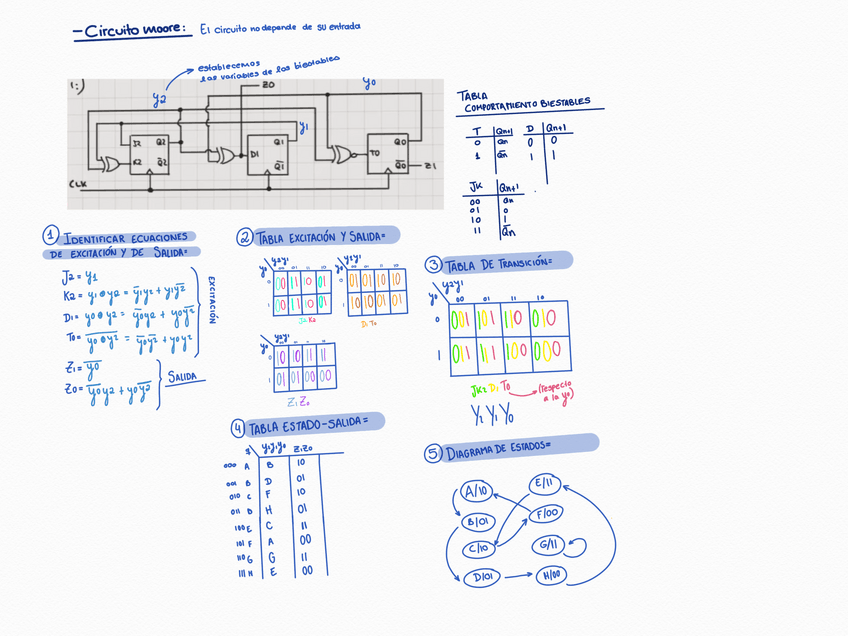 - Circuito moore: El circuito no depende de su entrada
establecemos
las variables de los biestables
1:)
y2
ZO
y0
y1
J2 Q2
K2 Q̅2
D1 Q1
Q̅1
TO Q0
Q̅0
Z1
CLK
TABLA
COMPORTAMIENTO BIESTABLES
T Qn+1 D Qn+1
0 Qn 0 0
1 Q̅n 1 1
JK Qn+1
00 Qn
01 0
10 1
11 Q̅n
1 IDENTIFICAR ECUACIONES
DE EXCITACIÓN Y DE SALIDA=
J2 = y1
K2 = y1⊕y2 = y̅1y2 + y1y̅2
D1 = y0⊕y2 = y̅0y2 + y0y̅2
T0 = y̅0̅⊕̅y̅2̅ = y̅0y̅2 + y0y2
EXCITACIÓN
Z1 = y̅0
Z0 = y̅0y2 + y0y̅2
SALIDA
2 TABLA EXCITACIÓN Y SALIDA=
y0 y2y1
00 01 11 10
0 00 11 10 01
1 00 11 10 01
J2 K2
y0 y2y1
00 01 11 10
0 01 01 10 10
1 10 10 01 01
D1 T0
y0 y2y1
0 10 10 11 11
1 01 01 00 00
Z1 Z0
3 TABLA DE TRANSICIÓN=
y0 y2y1
00 01 11 10
0 001 101 110 010
1 011 111 100 000
JK2 D1 T0 (respecto
a la y0)
Y2 Y1 Y0
4 TABLA ESTADO-SALIDA=
S y2y1y0 Z1Z0
000 A B 10
001 B D 01
010 C F 10
011 D H 01
100 E C 11
101 F A 00
110 G G 11
111 H E 00
5 DIAGRAMA DE ESTADOS=
A/10
E/11
B/01
F/00
C/10
G/11
D/01
H/00